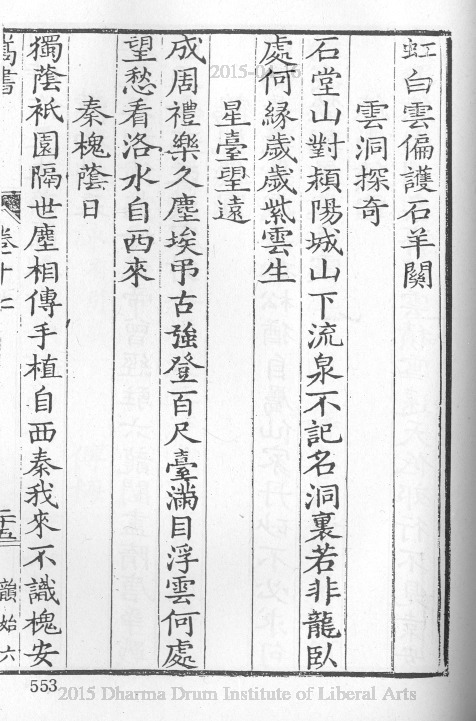 虹白雲偏護石羊關
雲洞探奇
石堂山對潁陽城山下流泉不記名洞裏若非龍臥
處何緣歲歲紫雲生
星臺望遠
成周禮樂久塵埃弔古強登百尺臺滿目浮雲何處
望愁看洛水自西來
秦槐蔭日
獨蔭祇園隔世塵相傳手植自西秦我來不識槐安
嵩書
卷十七
二十五
韻始六
553
2015 Dharma Drum Institute of Liberal Arts